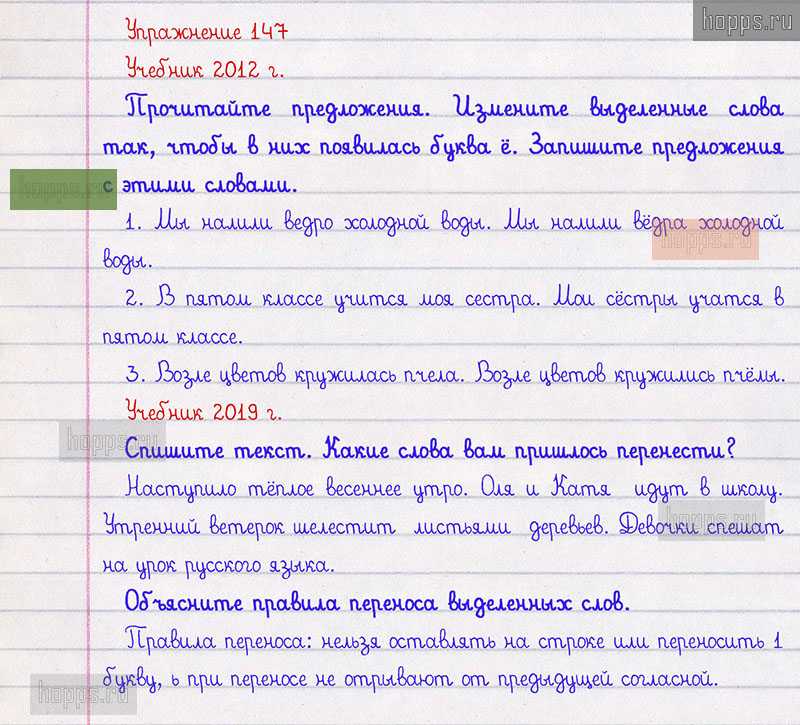 hopps.ru
Упражнение 147
Учебник 2012 г.
Прочитайте предложения. Измените выделенные слова
так, чтобы в них появилась буква ё. Запишите предложения
hopps.ru
с этими словами.
1. Мы налили ведро холодной воды. Мы налили вёдра холодной
hopps.ru
воды.
2. В пятом классе учится моя сестра. Мои сёстры учатся в
пятом классе.
3. Возле цветов кружилась пчела. Возле цветов кружились пчёлы.
Учебник 2019 г.
hopps.ru
Спишите текст. Какие слова вам пришлось перенести?
Наступило тёплое весеннее утро. Оля и Катя идут в школу.
hopps.ru
Утренний ветерок шелестит листьями деревьев. Девочки спешат
на урок русского языка.
Объясните правила переноса выделенных слов.
Правила переноса: нельзя оставлять на строке или переносить 1
букву, ь при переносе не отрывают от предыдущей согласной.
hopps.ru